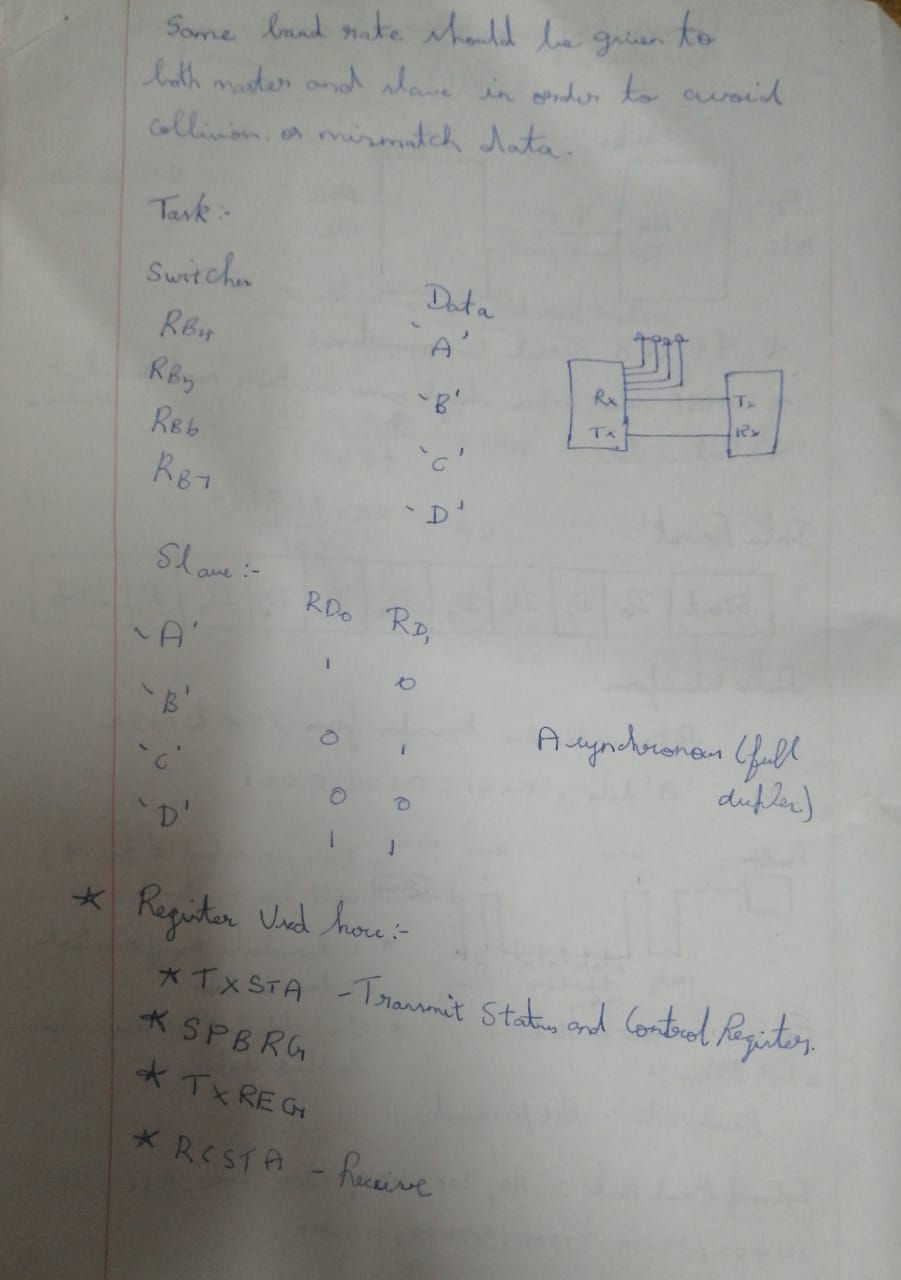 Same baud rate should be given to
both master and slave in order to avoid
collision or mismatch data.
Task :-
Switches Data
RB4 'A'
RB5 'B'
RB6 'C'
RB7 'D'
Rx Tx
Tx Rx
Slave :-
RD0 RD1
'A' 1 0
'B' 0 1
'C' 0 0
'D' 1 1
Asynchronous (full
duplex)
* Register Used here :-
* TXSTA - Transmit Status and Control Register.
* SPBRG
* TXREG
* RCSTA - Receive